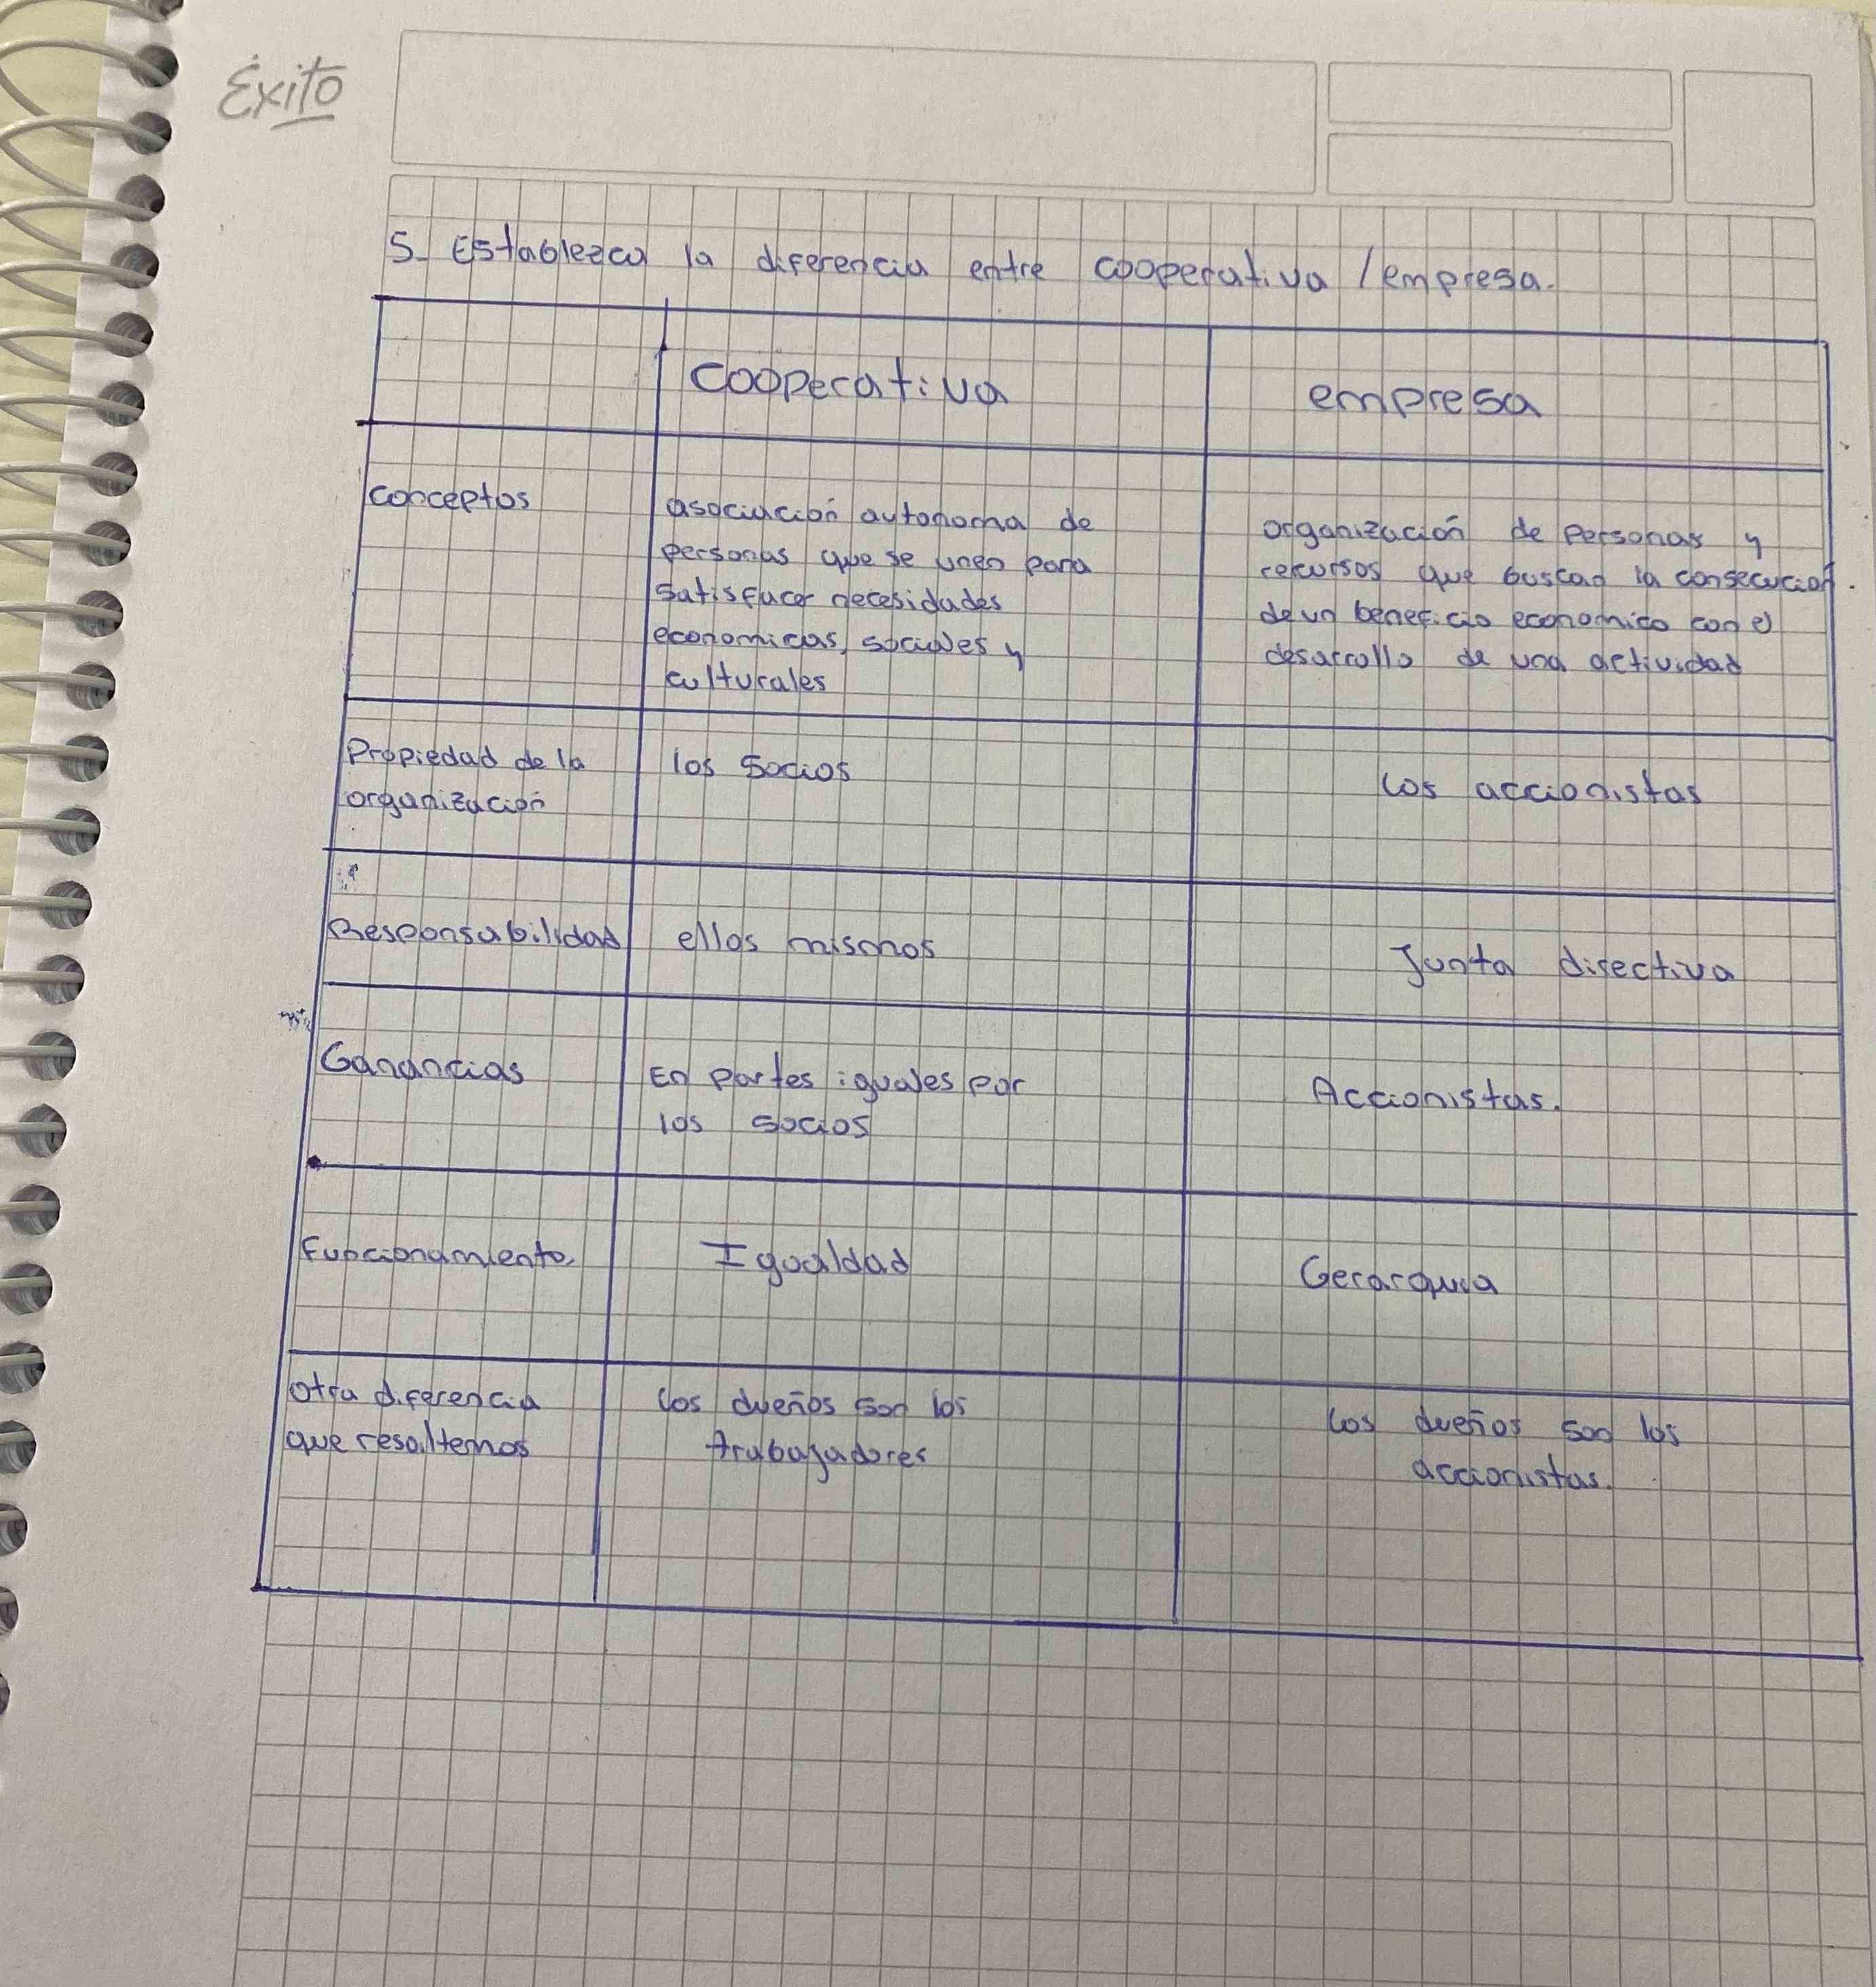 Éxito
5- Establezca la diferencia entre cooperativa / empresa.
Cooperativa
empresa
conceptos
asociación autonoma de
personas que se unen para
satisfacer necesidades
economicas, sociales y
culturales
organización de personas y
recursos que buscan la consecución.
de un beneficio economico con el
desarrollo de una actividad
Propiedad de la
organización
los socios
los accionistas
Responsabilidad
ellos mismos
Junta directiva
Ganancias
En partes iguales por
los socios
Accionistas.
Funcionamiento
Igualdad
Gerarquia
otra diferencia
que resaltemos
los dueños son los
trabajadores
los dueños son los
accionistas.